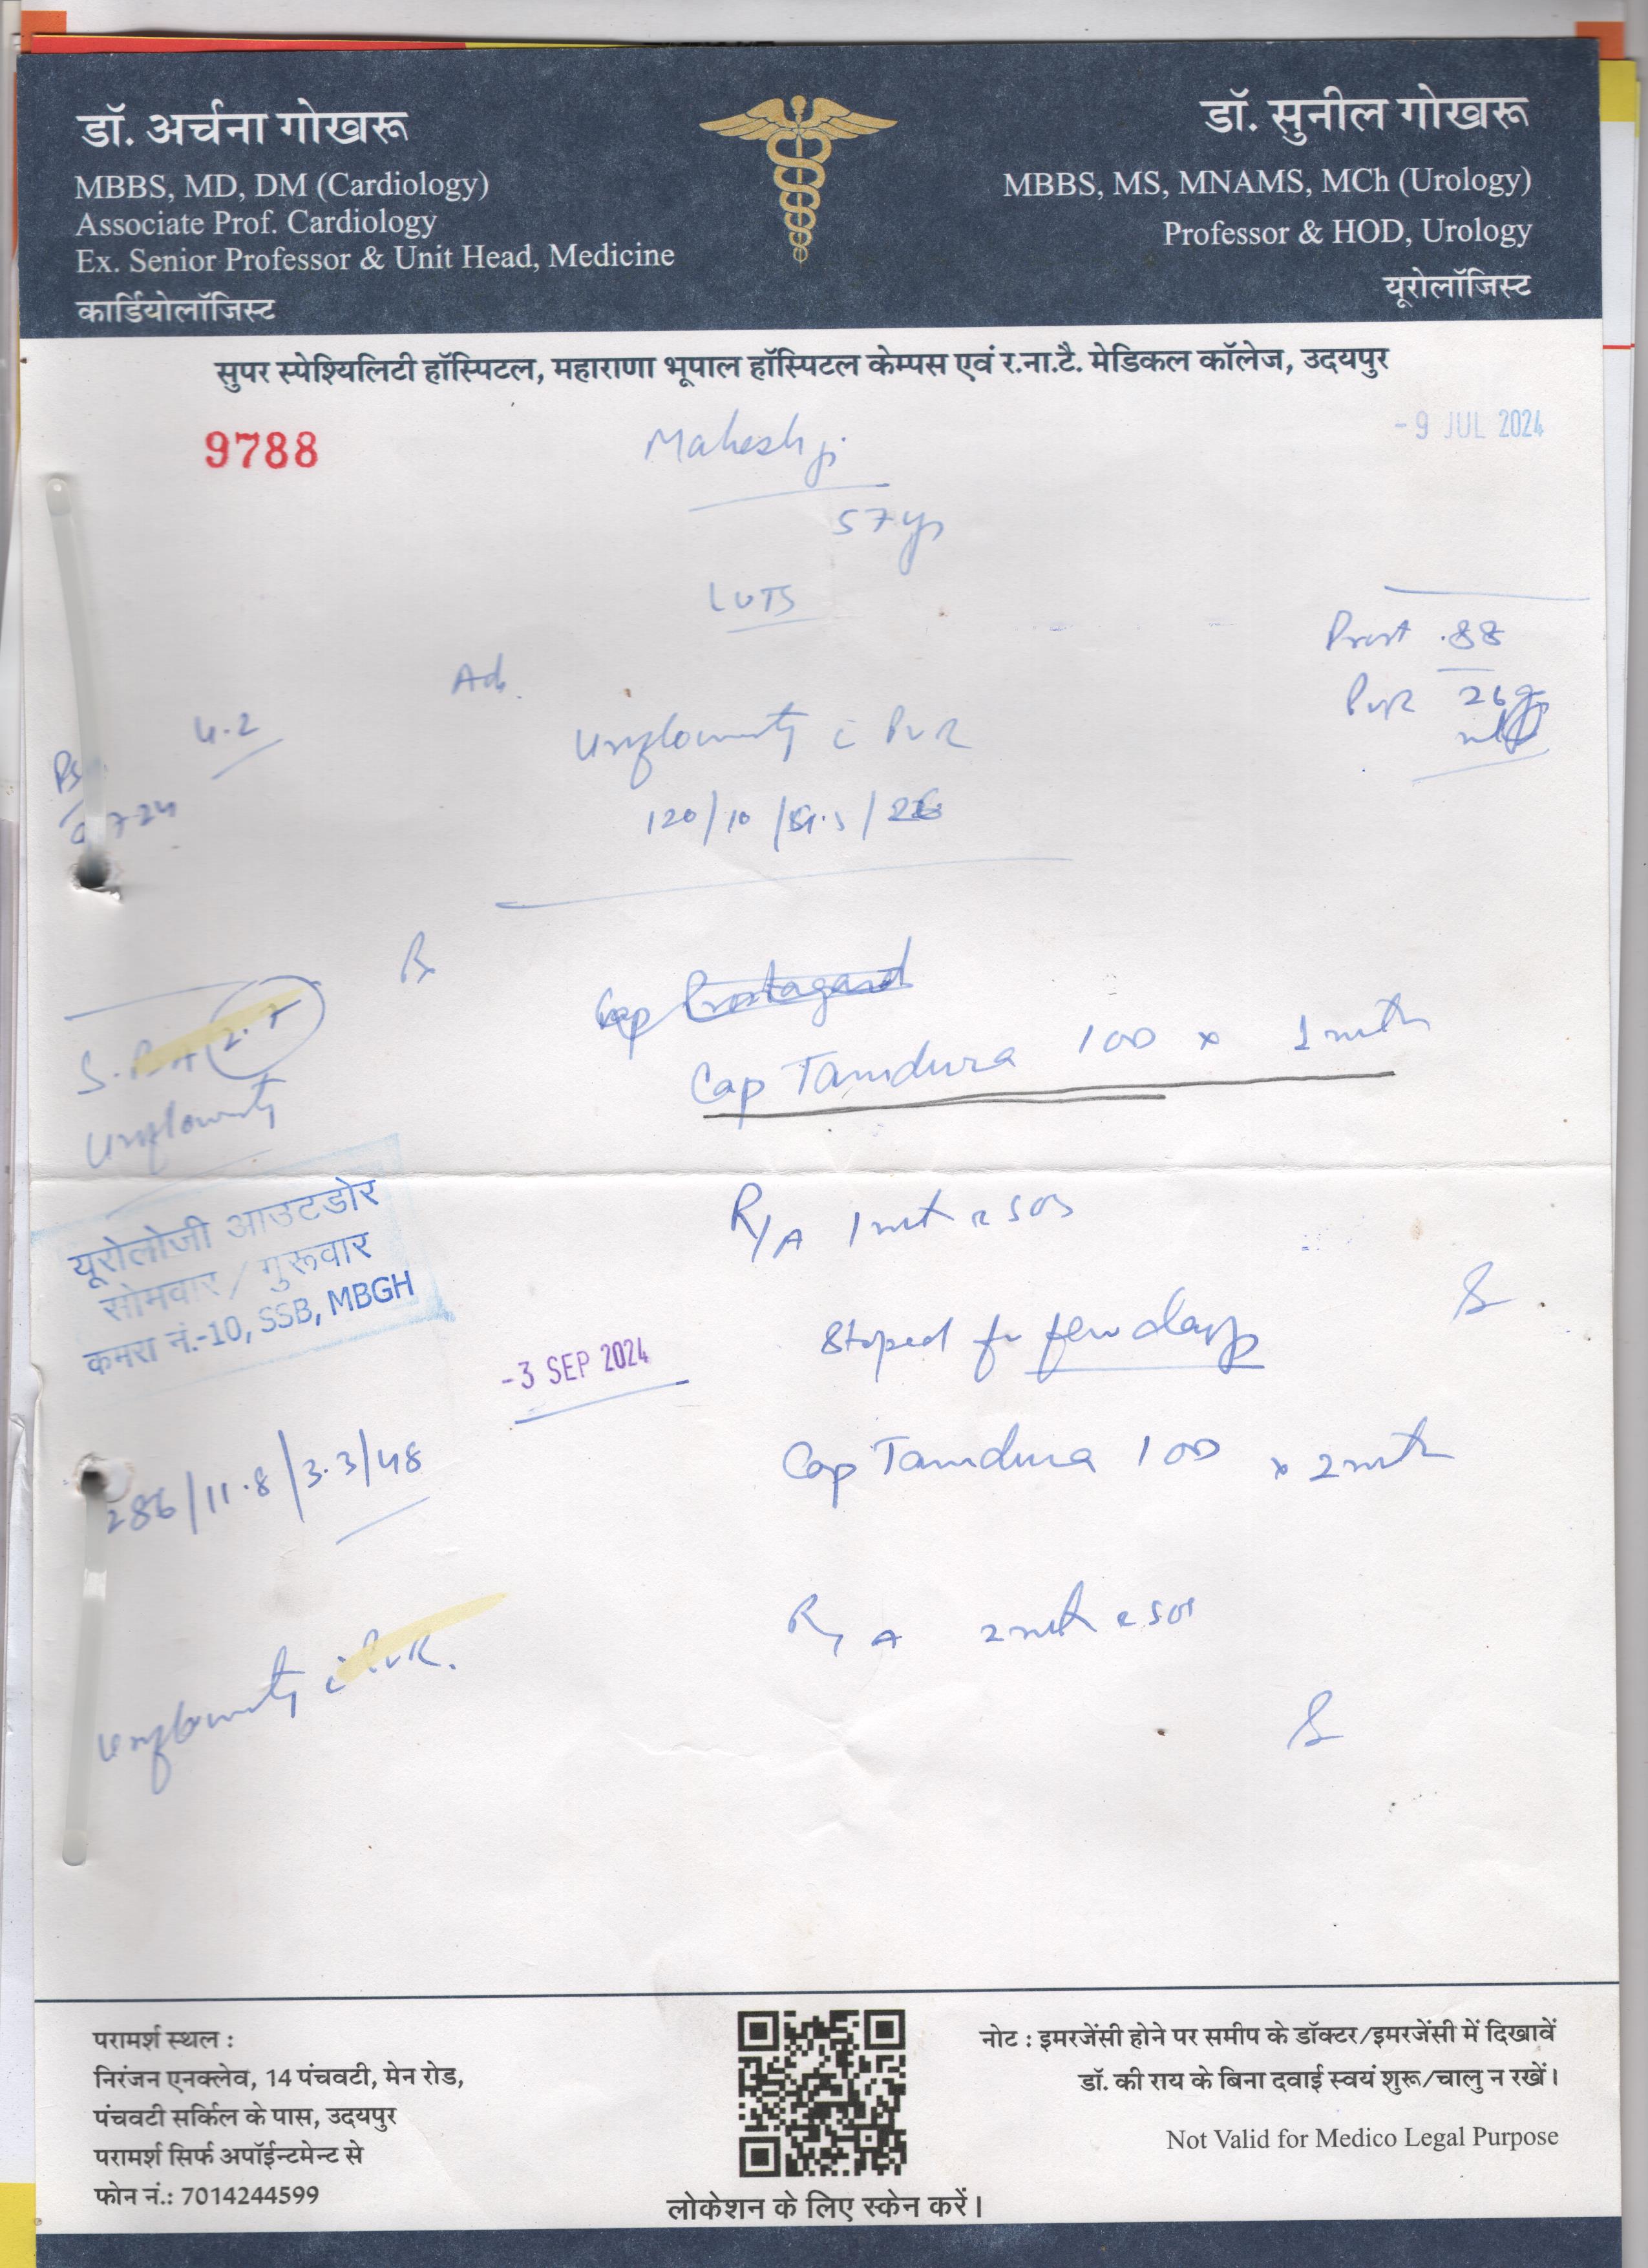 डॉ. अर्चना गोखरू
MBBS, MD, DM (Cardiology)
Associate Prof. Cardiology
Ex. Senior Professor & Unit Head, Medicine
कार्डियोलॉजिस्ट
डॉ. सुनील गोखरू
MBBS, MS, MNAMS, MCh (Urology)
Professor & HOD, Urology
यूरोलॉजिस्ट
सुपर स्पेश्यिलिटी हॉस्पिटल, महाराणा भूपाल हॉस्पिटल केम्पस एवं र.ना.टै. मेडिकल कॉलेज, उदयपुर
9788
Mahesh ji
-9 JUL 2024
57 yrs
LUTS
Prost .88
PVR 26
Adv.
4.2
Uroflowmetry c PVR
7-24
120/10/
Rx
Cap
Cap Tamdura 100 x 1 mth
S. PSA 2.7
Uroflowmetry
R/A 1 mth c SOS
यूरोलोजी आउटडोर
सोमवार / गुरूवार
कमरा नं.-10, SSB, MBGH
Stoped for few days
-3 SEP 2024
Cap Tamdura 100 x 2 mth
286/11.8/3.3/48
R/A 2 mth c SOS
Uroflowmetry c PVR.
परामर्श स्थल :
निरंजन एनक्लेव, 14 पंचवटी, मेन रोड,
पंचवटी सर्किल के पास, उदयपुर
परामर्श सिर्फ अपॉईन्टमेन्ट से
फोन नं.: 7014244599
लोकेशन के लिए स्केन करें।
नोट : इमरजेंसी होने पर समीप के डॉक्टर/इमरजेंसी में दिखावें
डॉ. की राय के बिना दवाई स्वयं शुरू/चालु न रखें।
Not Valid for Medico Legal Purpose